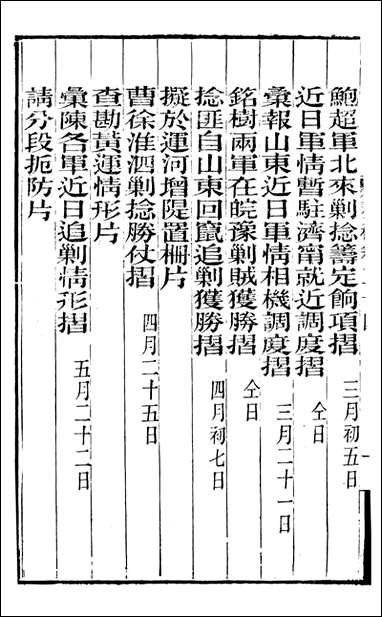 鮑超軍北來剿捻籌定餉項摺 三月初五日
近日軍情暫駐濟甯就近調度摺 仝日
彙報山東近日軍情相機調度摺 三月二十一日
銘樹兩軍在皖豫剿賊獲勝摺 仝日
捻匪自山東回竄追剿獲勝摺 四月初七日
擬於運河增隄置柵片
曹徐淮泗剿捻勝仗摺 四月二十五日
查勘黃運情形片
彙陳各軍近日追剿情形摺 五月二十二日
請分段扼防片